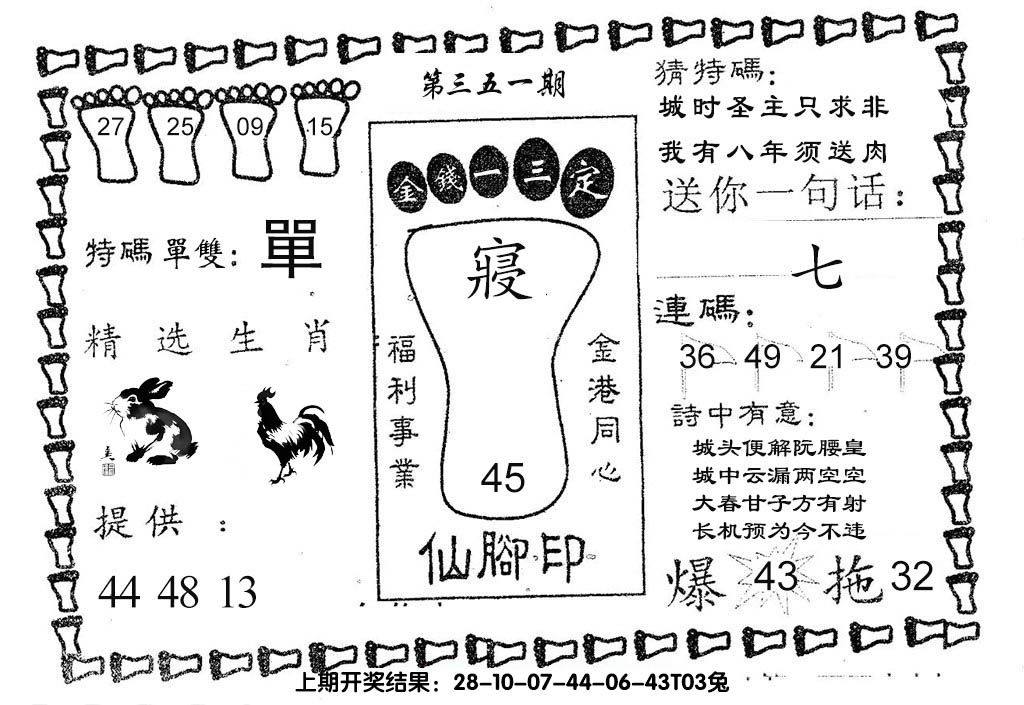 第三五一期
27 25 09 15
特碼單雙：單
精选生肖
提供：
44 48 13
金錢一三定
寢
福利事業
金港同心
45
仙腳印
猜特碼：
城时圣主只求非
我有八年须送肉
送你一句话：
七
連碼：
36 49 21 39
詩中有意：
城头便解阮腰皇
城中云漏两空空
大春甘子方有射
长机预为今不违
爆 43 拖 32
上期开奖结果：28-10-07-44-06-43T03兔